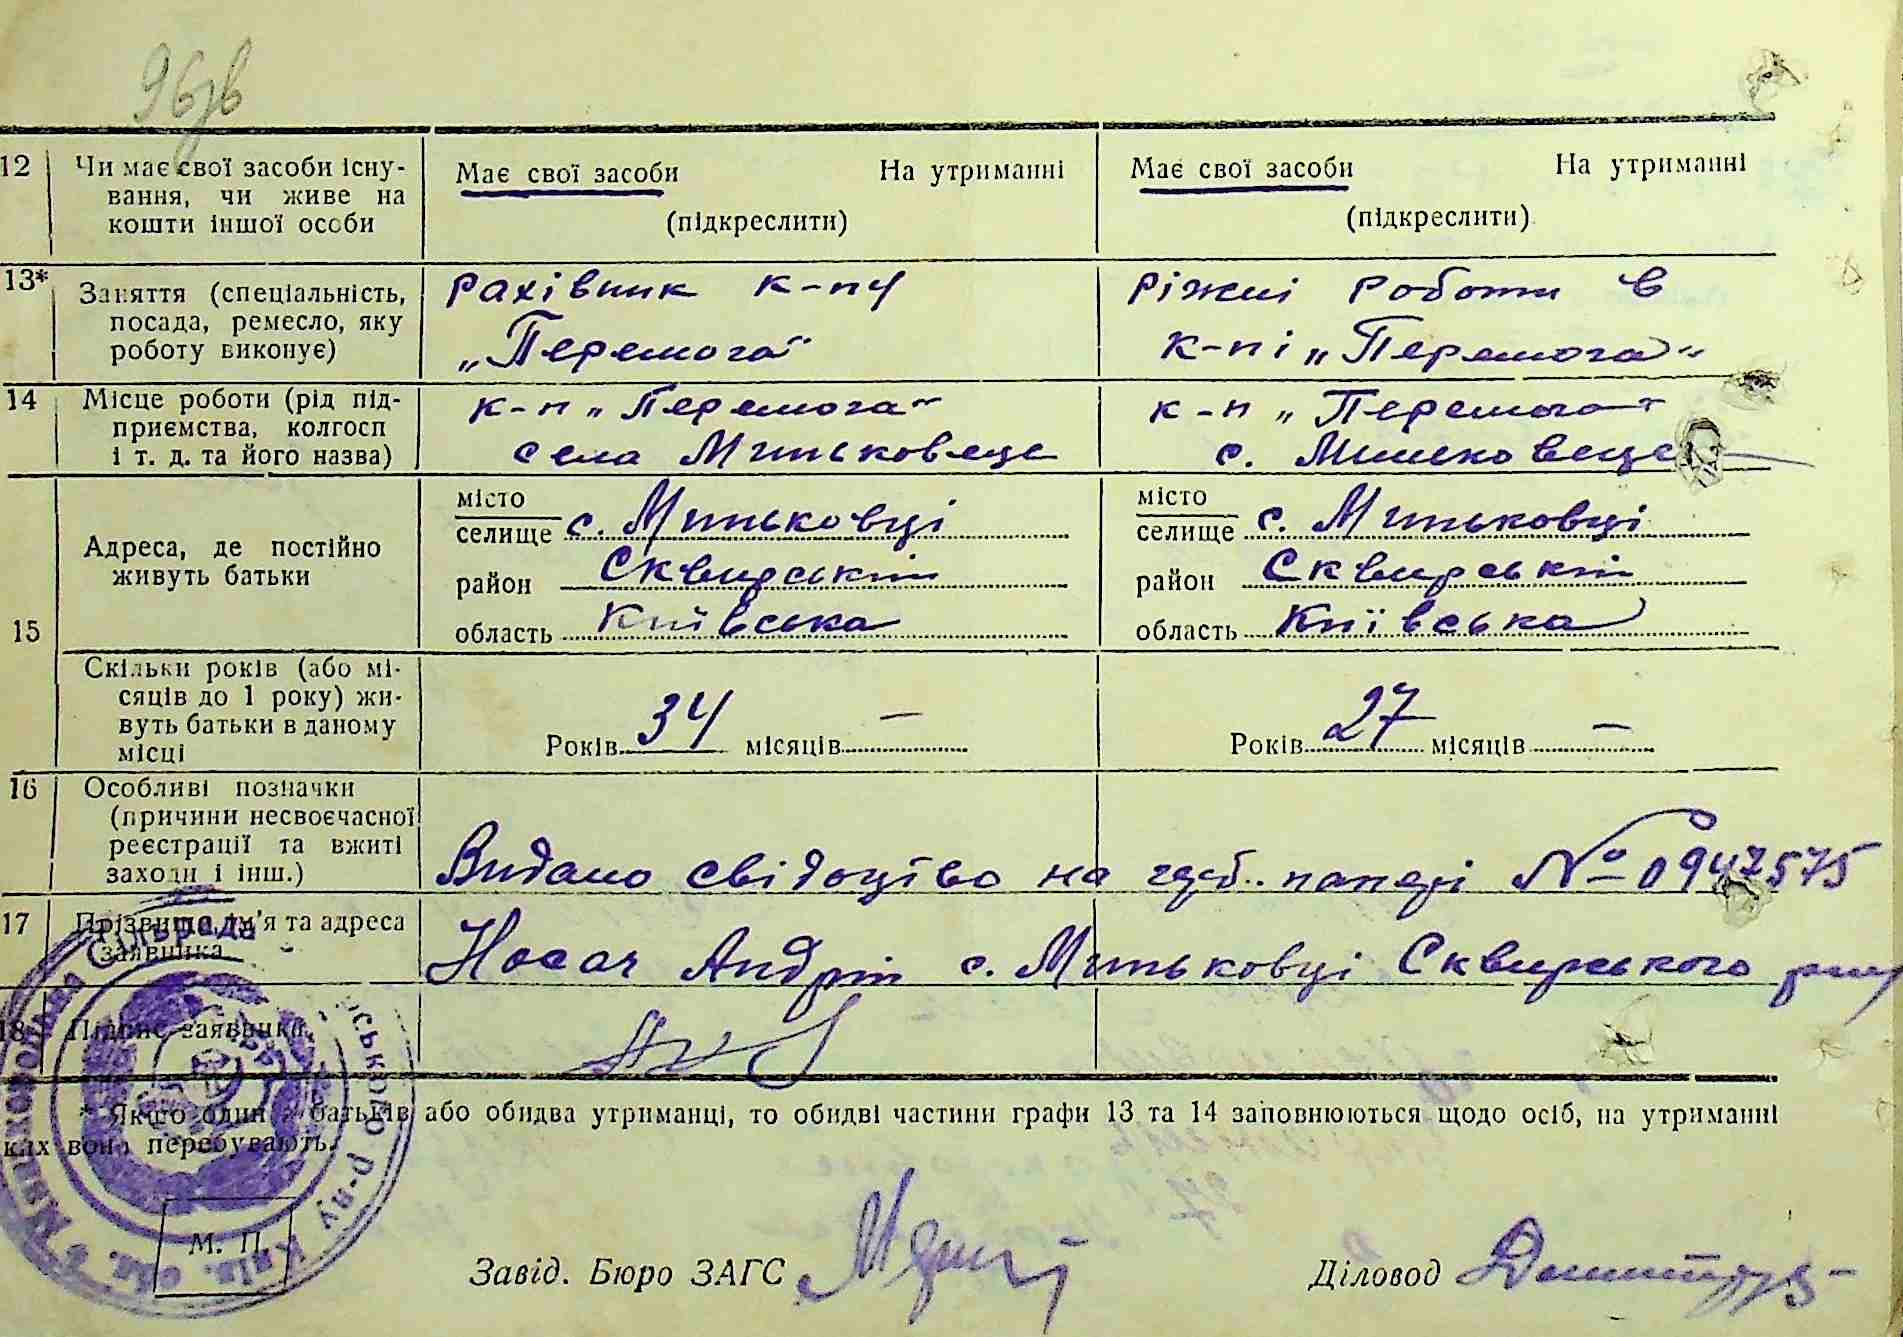 96зв
12 Чи має свої засоби існу- Має свої засоби На утриманні Має свої засоби На утриманні
вання, чи живе на
кошти іншої особи (підкреслити) (підкреслити)
13* Заняття (спеціальність, рахівник к-пу ріжні роботи в
посада, ремесло, яку
роботу виконує) „Перемога" к-пі „Перемога"
14 Місце роботи (рід під- к-п „Перемога" к-п „Перемога"
приємства, колгосп
і т. д. та його назва) села Миньковець с. Миньковець
15 Адреса, де постійно
живуть батьки
місто місто
селище с. Миньковці селище с. Миньковці
район Сквирський район Сквирський
область Київська область Київська
Скільки років (або мі-
сяців до 1 року) жи-
вуть батьки в даному
місці
Років 34 місяців — Років 27 місяців —
16 Особливі позначки
(причини несвоєчасної
реєстрації та вжиті
заходи і інш.) Видано свідоцтво на герб. папері № 0947575
17 Прізвище, ім'я та адреса
заявника Носач Андрій с. Миньковці Сквирського р-ну
18 Підпис заявника
* Якщо один з батьків або обидва утриманці, то обидві частини графи 13 та 14 заповнюються щодо осіб, на утриманні
ких вони перебувають.
Сільрада
ського р-ну Київ. обл.
М. П.
Завід. Бюро ЗАГС
Діловод